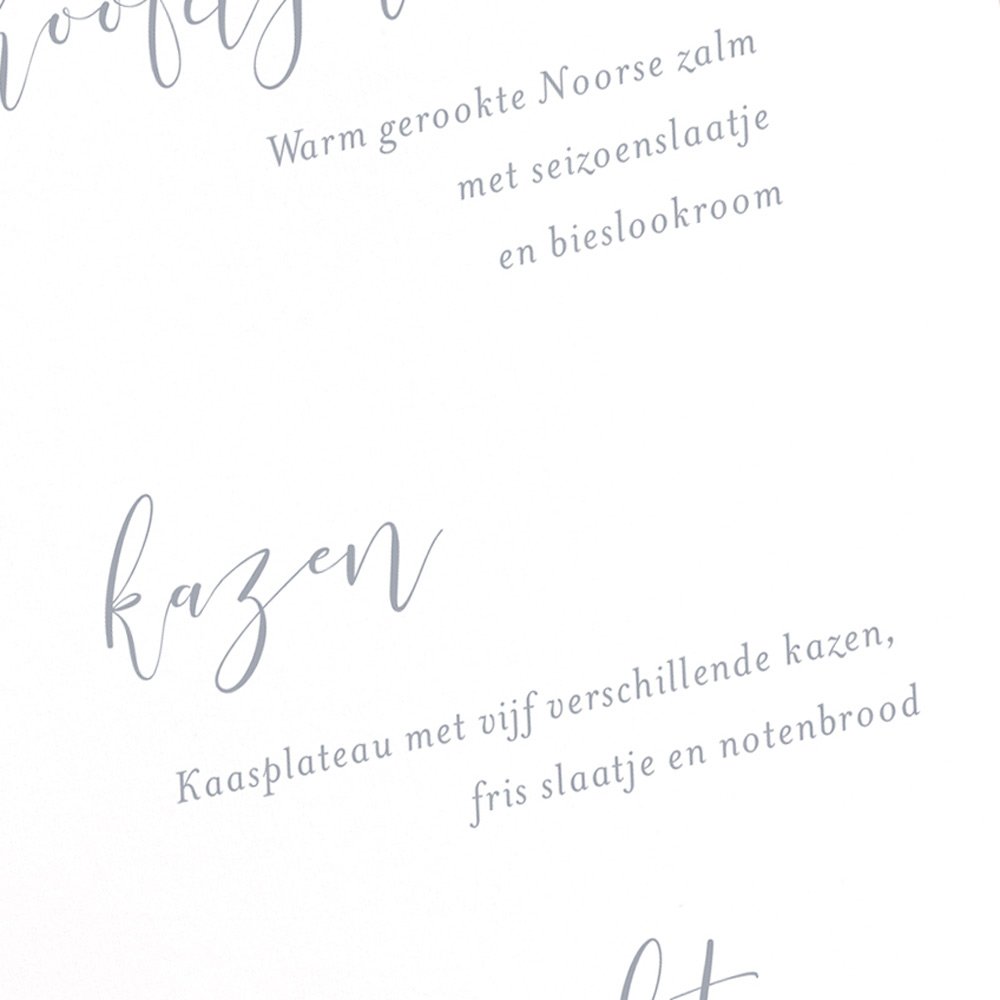 Warm gerookte Noorse zalm
met seizoenslaatje
en bieslookroom
kazen
Kaasplateau met vijf verschillende kazen,
fris slaatje en notenbrood